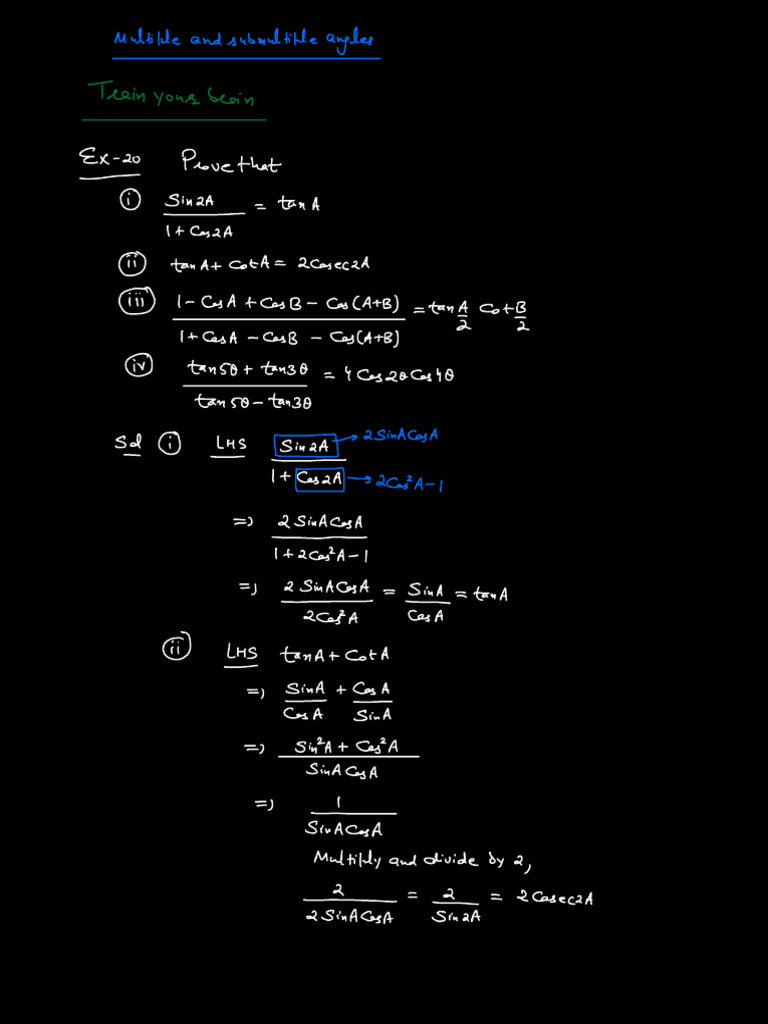 Multiple and submultiple angles
Train your brain
Ex-20 Prove that
(i) Sin2A / (1 + Cos2A) = tanA
(ii) tanA + CotA = 2Cosec2A
(iii) (1 - CosA + CosB - Cos(A+B)) / (1 + CosA - CosB - Cos(A+B)) = tan A/2 Cot B/2
(iv) (tan5θ + tan3θ) / (tan5θ - tan3θ) = 4Cos2θCos4θ
Sol (i) LHS Sin2A → 2SinACosA
1 + Cos2A → 2Cos²A-1
=> 2SinACosA / (1+2Cos²A-1)
=> 2SinACosA / 2Cos²A = SinA / CosA = tanA
(ii) LHS tanA + CotA
=> SinA / CosA + CosA / SinA
=> (Sin²A + Cos²A) / SinACosA
=> 1 / SinACosA
Multiply and divide by 2,
2 / 2SinACosA = 2 / Sin2A = 2Cosec2A